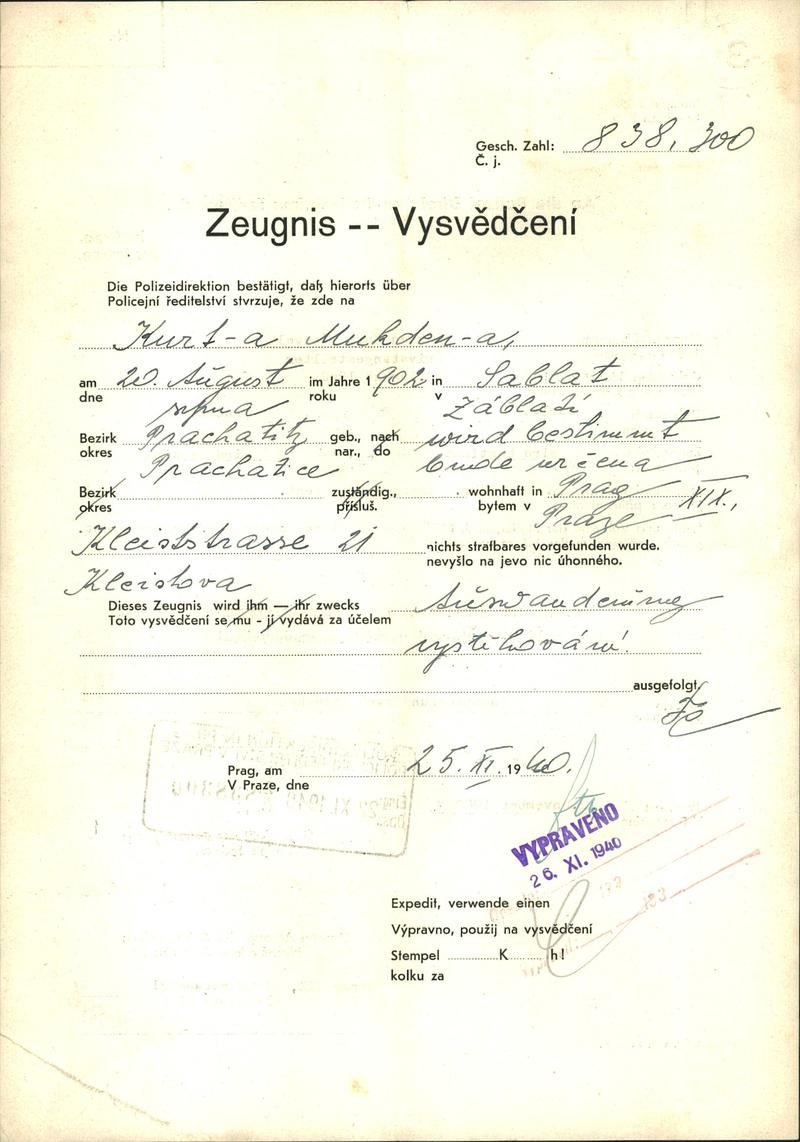 Gesch. Zahl: 838,300
Č. j.
Zeugnis -- Vysvědčení
Die Polizeidirektion bestätigt, daß hierorts über
Policejní ředitelství stvrzuje, že zde na
Kurt-a Muhden-a,
am 20. August im Jahre 1902 in Sablat
dne srpna roku v Záblatí
Bezirk Prachatitz geb., nach wird bestimmt
okres Prachatice nar., do bude určena
Bezirk zuständig., wohnhaft in Prag XIX.,
okres přísluš. bytem v Praze
Kleiststrasse 21 nichts strafbares vorgefunden wurde.
Kleistova nevyšlo na jevo nic úhonného.
Dieses Zeugnis wird ihm — ihr zwecks Auswanderung
Toto vysvědčení se mu - jí vydává za účelem
vystěhování.
ausgefolgt
Prag, am 25. XI. 1940.
V Praze, dne
VYPRAVENO
26. XI. 1940
Expedit, verwende einen
Výpravno, použij na vysvědčení
Stempel K h!
kolku za